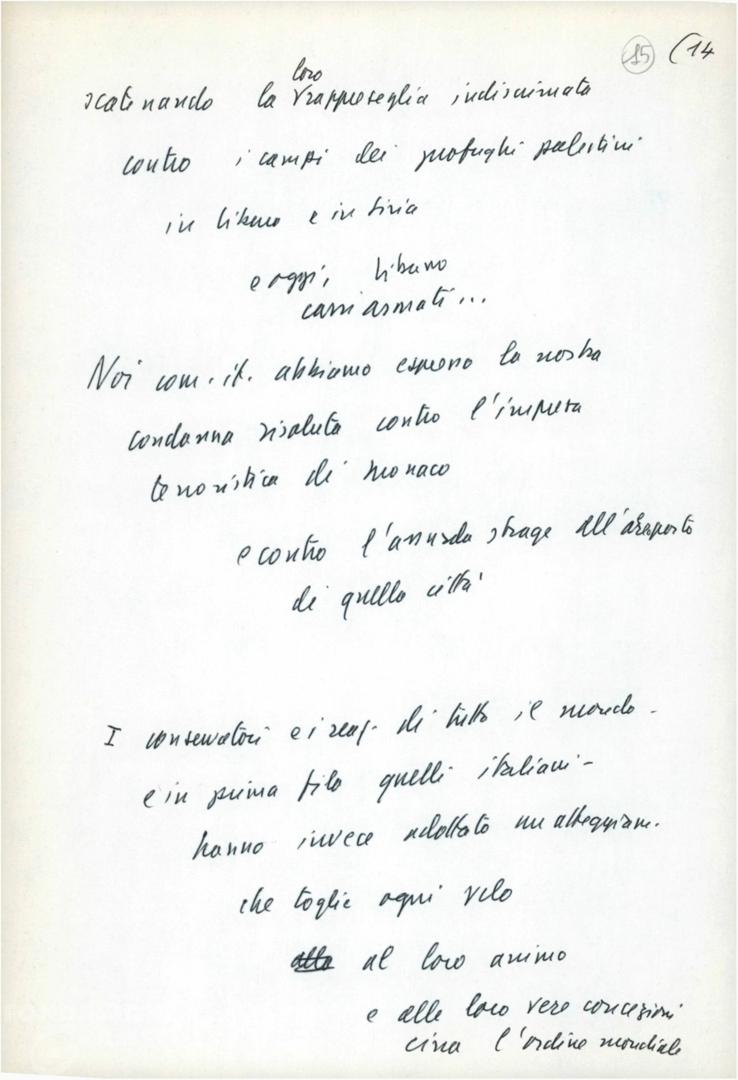 15 (14
loro
scatenando la rappresaglia indiscriminata
contro i campi dei profughi palestini
in libano e in siria
e oggi, libano
carri armati...
Noi com. it. abbiamo espresso la nostra
condanna risoluta contro l'impresa
terroristica di Monaco
e contro l'assurda strage all'aereoporto
di quella città
I conservatori e i reaz. di tutto il mondo -
e in prima fila quelli italiani -
hanno invece adottato un atteggiam.
che toglie ogni velo
alla al loro animo
e alle loro vere concezioni
circa l'ordine mondiale